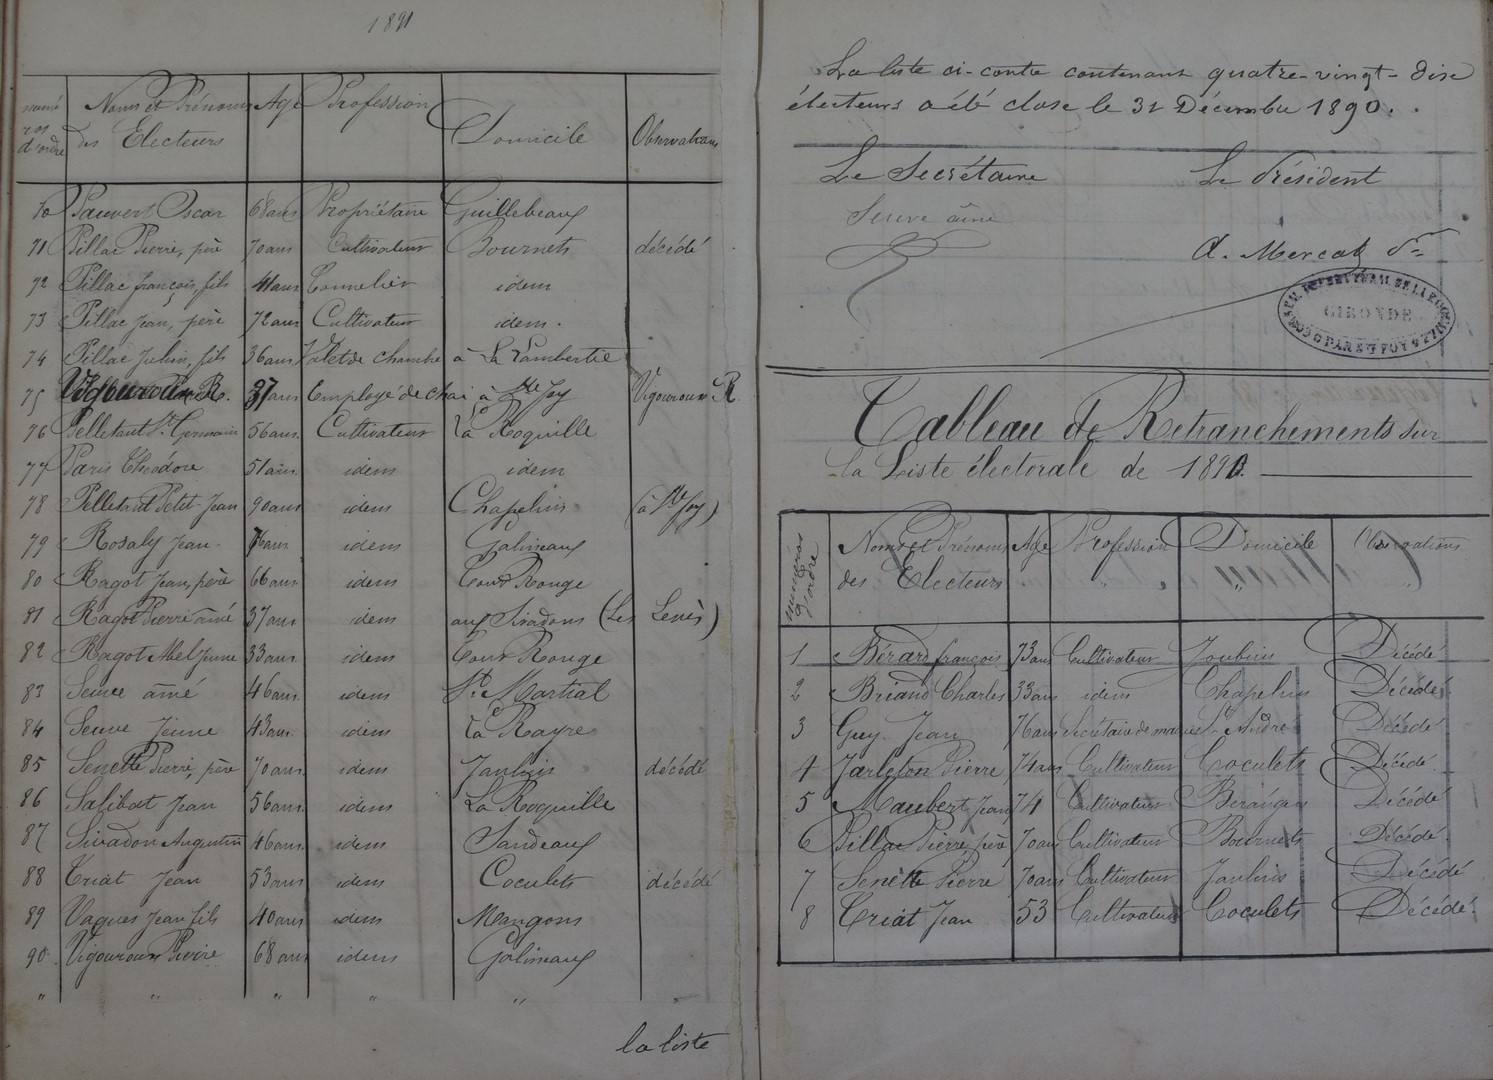 1891
numéros d'ordre Noms et Prénoms des Electeurs Age Profession Domicile Observations
70 Pauvert Oscar 68 ans Propriétaire Guillebeaux
71 Pillac Pierre, père 70 ans Cultivateur Bournets décédé
72 Pillac françois, fils 41 ans Tonnelier idem
73 Pillac Jean, père 72 ans Cultivateur idem.
74 Pillac Julien, fils 36 ans Valet de chambre à La Lambertie
75 37 ans Employé de chai à Ste Foy Vigouroux R
76 Pelletant St Germain 56 ans Cultivateur La Roquille
77 Paris Théodore 51 ans idem idem
78 Pelletant Petit-Jean 90 ans idem Chapelins (à Ste Foy)
79 Rosaly Jean 76 ans idem Galineaux
80 Ragot Jean, père 66 ans idem Tour Rouge
81 Ragot Pierre aîné 37 ans idem aux Sivadons (Les Lèves)
82 Ragot Abel jeune 33 ans idem Tour Rouge
83 Seuve aîné 46 ans idem St Martial
84 Seuve Jeune 43 ans idem à La Rayre
85 Senette Pierre, père 70 ans idem Jaulnis décédé
86 Safibat Jean 56 ans idem La Roquille
87 Sivadon Augustin 46 ans idem Jandeaux
88 Triat Jean 53 ans idem Coculets décédé
89 Vaques Jean fils 40 ans idem Mangons
90 Vigouroux Pierre 68 ans idem Galineaux
" " " " "
la liste
La liste ci-contre contenant quatre-vingt-dix
électeurs a été close le 31 Décembre 1890.
Le Secrétaire Le Président
Seuve aîné
A. Mercat
GIRONDE
Tableau de Retranchements sur
la Liste électorale de 1890.
numéros d'ordre Noms et Prénoms des Electeurs Age Profession Domicile Observations
1 Bérard françois 73 ans Cultivateur Joubins Décédé
2 Briand Charles 33 ans idem Chapelins Décédé
3 Guy Jean 76 ans Secrétaire de mairie St André Décédé
4 Jarleton Pierre 74 ans Cultivateur Coculets Décédé
5 Maubert Jean 74 Cultivateur Bérangers Décédé
6 Pillac Pierre, père 70 ans Cultivateur Bournets Décédé
7 Senette Pierre 70 ans Cultivateur Jaulnis Décédé
8 Triat Jean 53 Cultivateur Coculets Décédé